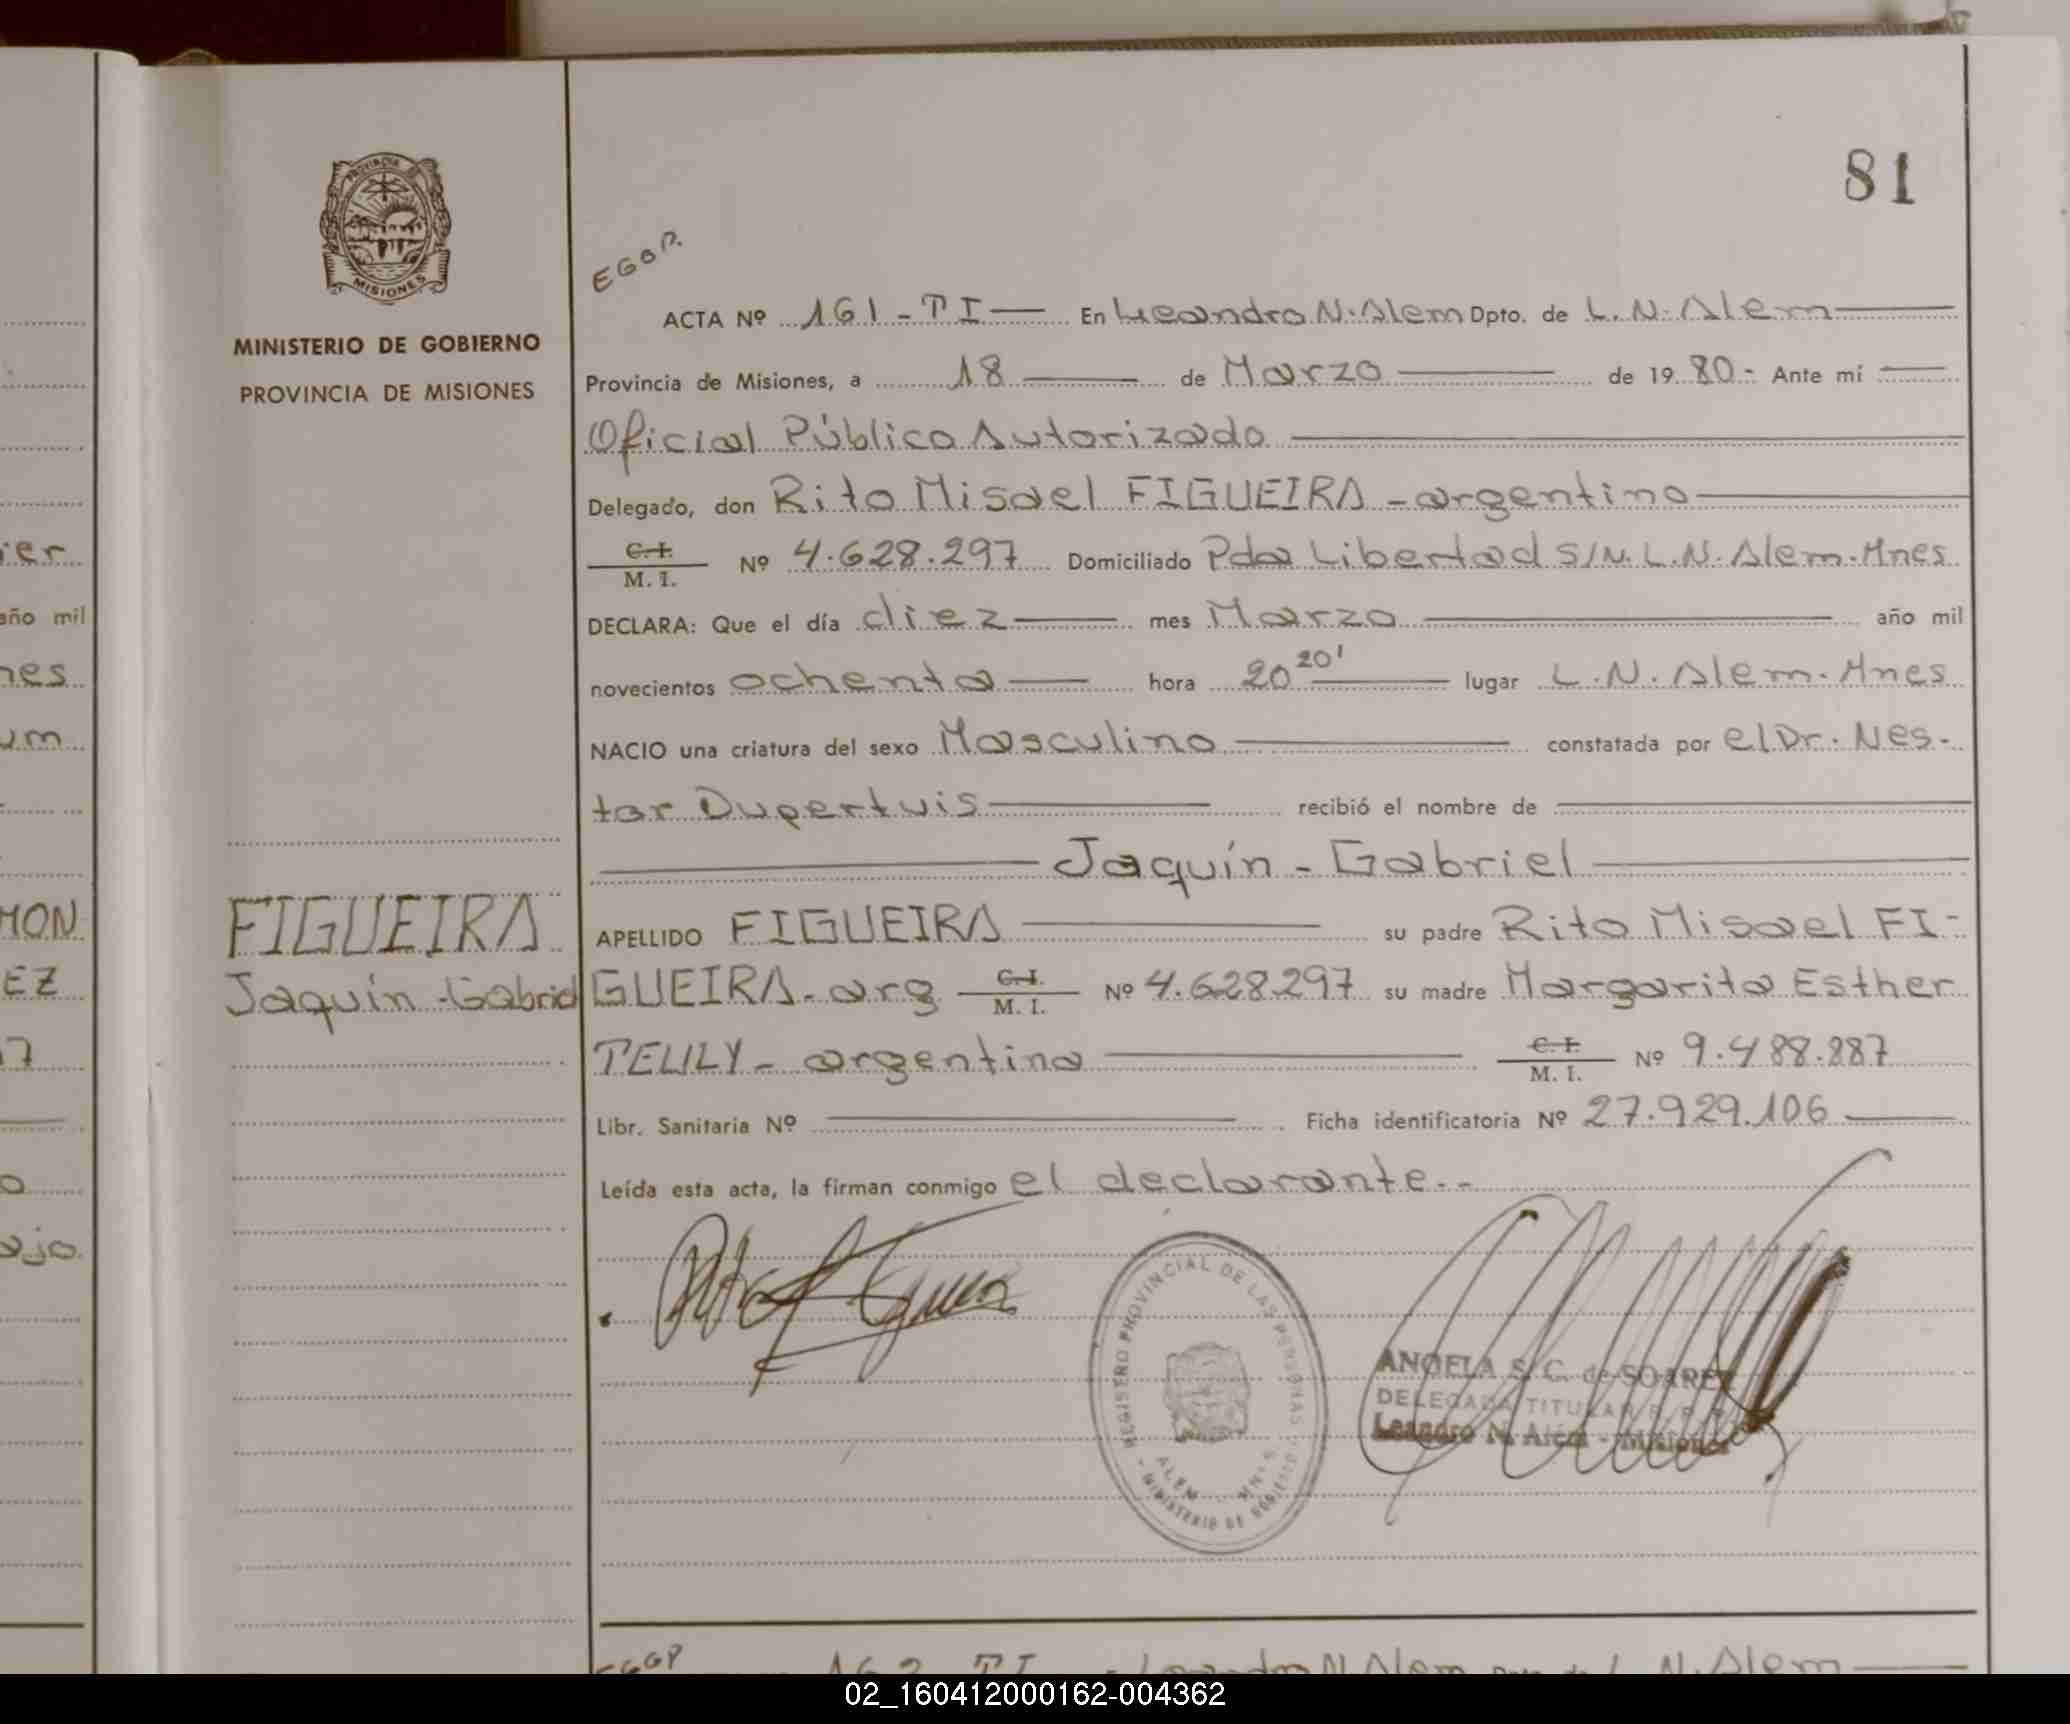 81
PROVINCIA
MISIONES
MINISTERIO DE GOBIERNO
PROVINCIA DE MISIONES
EGOR.
ACTA Nº 161 - TI — En Leandro N. Alem Dpto. de L. N. Alem —
Provincia de Misiones, a 18 — de Marzo — de 19 80 - Ante mí —
Oficial Público Autorizado —
Delegado, don Rito Misael FIGUEIRA - argentino —
C. I.
M. I. Nº 4.628.297 Domiciliado Pda Libertad S/N. L.N. Alem. Mnes
DECLARA: Que el día diez — mes Marzo — año mil
novecientos ochenta — hora 20 20' — lugar L. N. Alem. Mnes
NACIO una criatura del sexo Masculino — constatada por el Dr. Nes-
tor Dupertuis — recibió el nombre de —
— Jaquín - Gabriel —
APELLIDO FIGUEIRA — su padre Rito Misael FI-
GUEIRA - arg C. I.
M. I. Nº 4.628.297 su madre Margarita Esther
TELILY - argentina — C. I.
M. I. Nº 9.488.887
Libr. Sanitaria Nº — Ficha identificatoria Nº 27.929.106 —
Leída esta acta, la firman conmigo el declarante. -
FIGUEIRA
Jaquín - Gabriel
REGISTRO PROVINCIAL DE LAS PERSONAS
ALEM - MNES
- MINISTERIO DE GOBIERNO
ANGELA S. C. de SOAREZ
DELEGADA TITULAR R. P. P.
Leandro N. Alem - Misiones
ier
año mil
nes
um
MON
EZ
17
o
ajo.
162 TI - Leandro N Alem L. N. Alem —
02_160412000162-004362